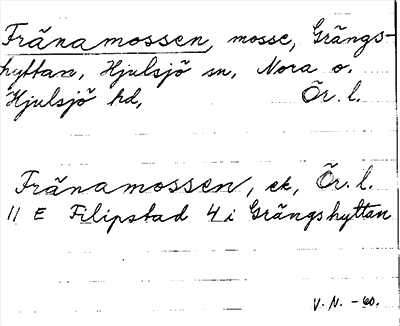 Fränamossen, mosse, Grängs-
hyttan, Hjulsjö sn, Nora o.
Hjulsjö hd, Ör. l.
Fränamossen, ek, Ör. l.
11 E Filipstad 4 i Grängshyttan
V. N. - 60.